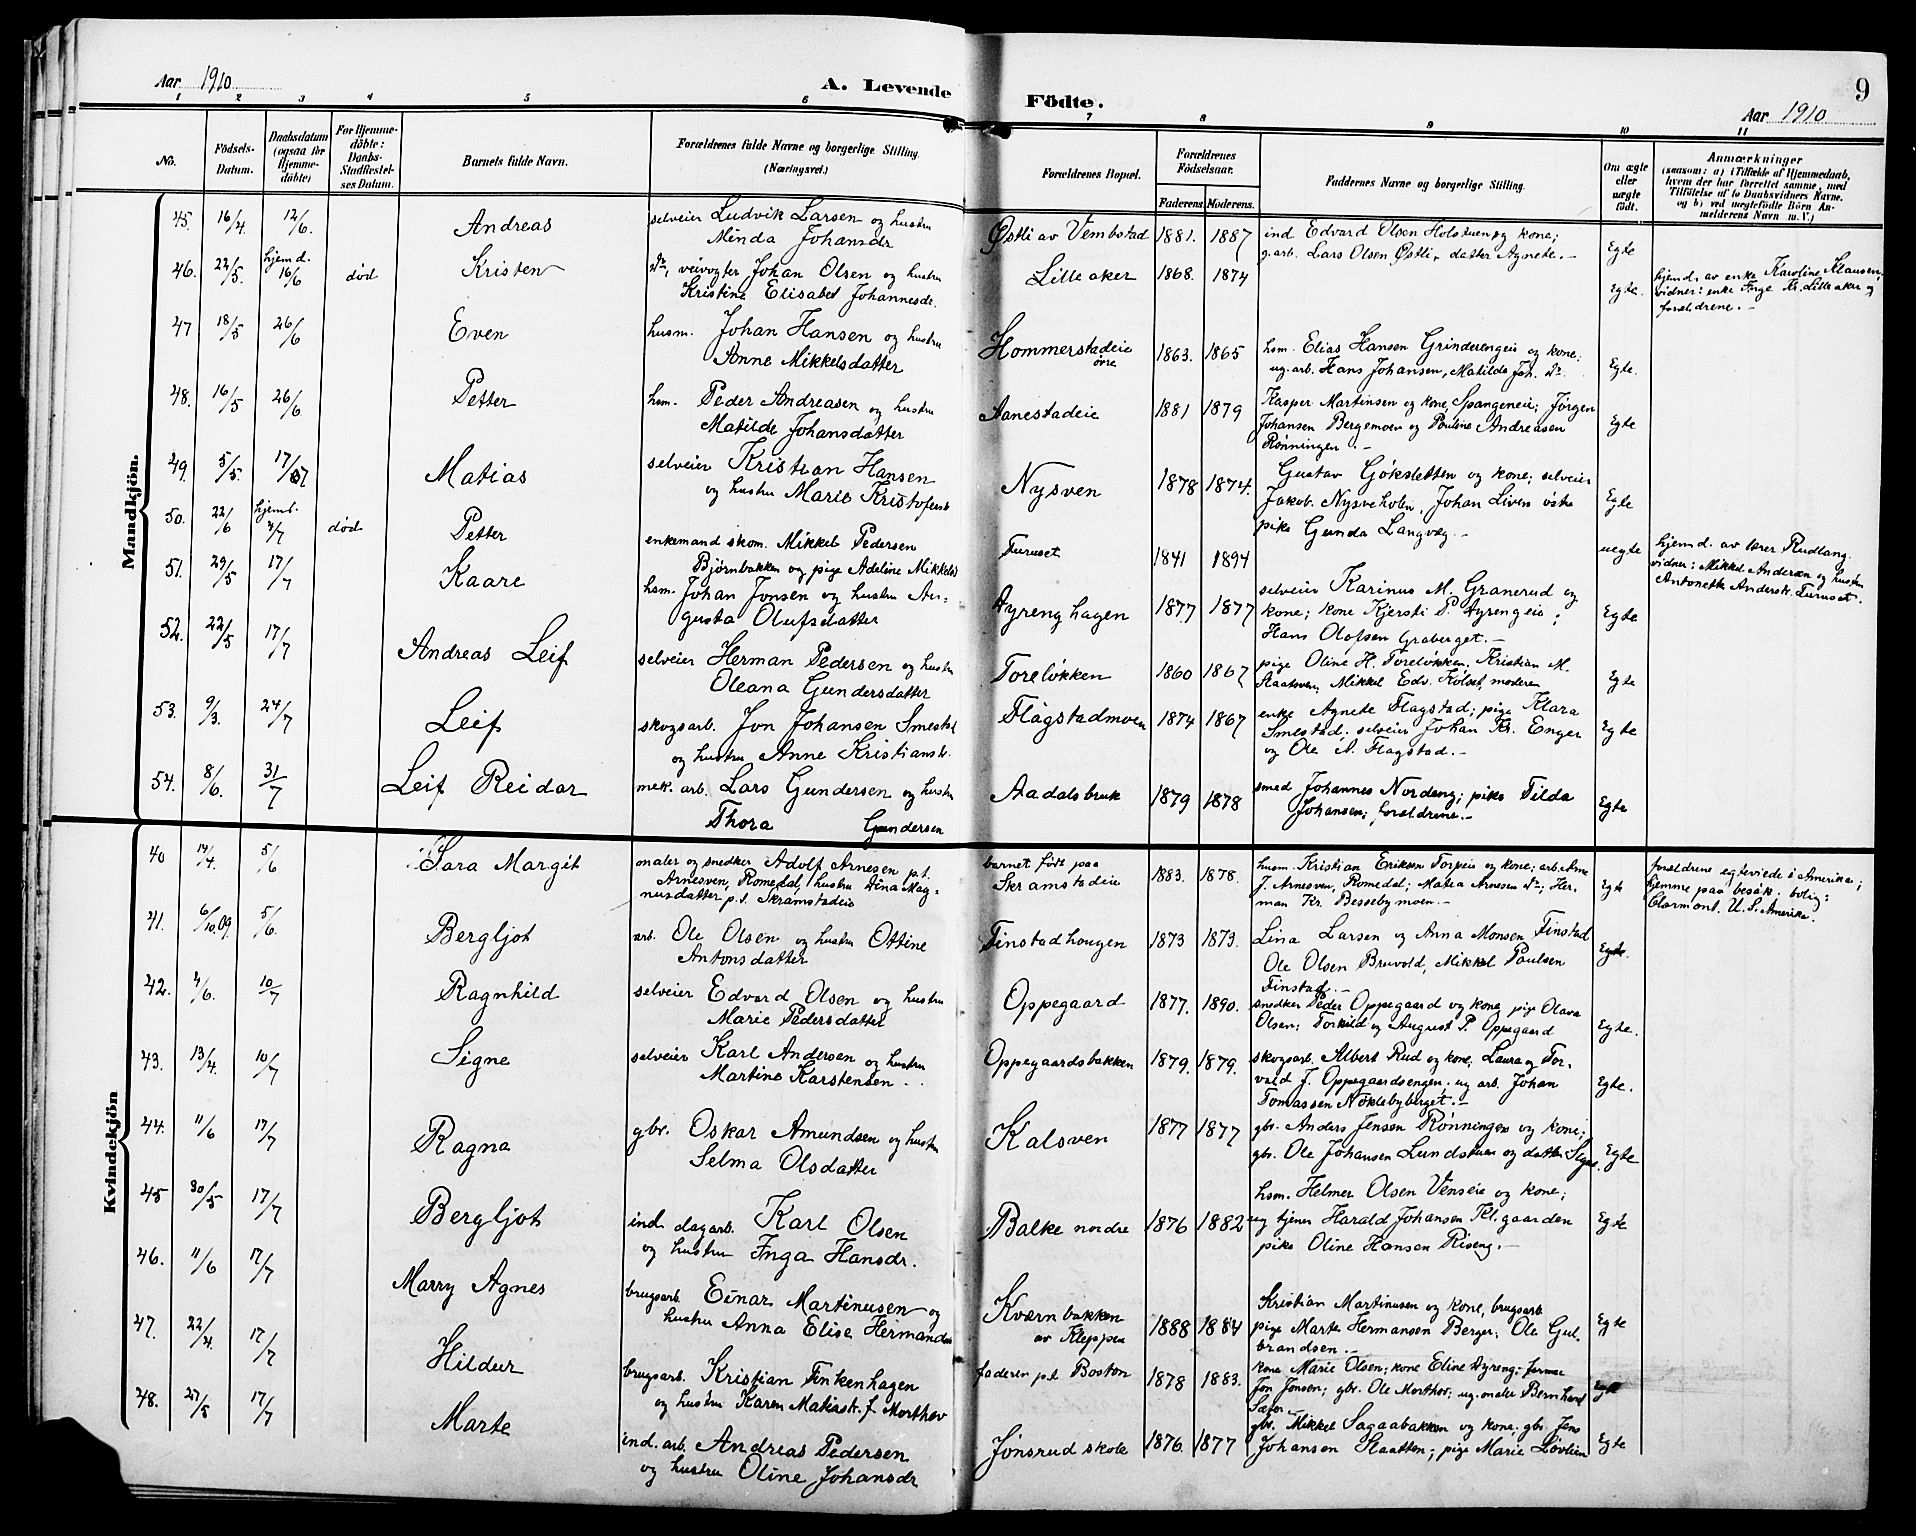 Aar 1910
A. Levende Födte.
9
Aar 1910
1 2 3 4 5 6 7 8 9 10 11
No.
Födsels-Datum.
Daabsdatum (ogsaa for Hjemme-döbte)
For Hjemme-döbte: Daabs-Stadfæstel-ses Datum.
Barnets fulde Navn.
Forældrenes fulde Navne og borgerlige Stilling. (Næringsvei.)
Forældrenes Bopæl.
Forældrenes Födselsaar.
Faderens. Moderens.
Faddernes Navne og borgerlige Stilling.
Om ægte eller uægte født.
Anmærkninger
(saasom: a) i Tilfælde af Hjemmedaab,
hvem der har forrettet samme, med
Tilföielse af to Daabsvidners Navne,
og b) ved uægtefödte Börn An-
melderens Navn m. V.)
Mandkjön.
45. 16/4 12/6. Andreas selveier Ludvik Larsen og hustru
Minda Johansdr Østli av Vembstad 1881. 1887 ind Edvard Olsen Holstuen og kone;
g.arb. Lars Olsen Østli, datter Agnete. Egte
46. 22/5. hjemd. 16/6 död Kristen veivogter Johan Olsen og hustru
Kristine Elisabet Johannesdr. Lilleaker 1868. 1874 Egte.
hjemd. av enke Karoline Klausen,
vidner: enke Inge Kr. Lilleaker og
forældrene.
47 18/5 26/6 Even husm. Johan Hansen og hustru
Anne Mikkelsdatter Hommerstadeie övre 1863. 1865 hsm. Elias Hansen Grinderengeie og kone;
ug.arb. Hans Johansen, Matilde Joh. Dr. Egte.
48. 16/5 26/6 Petter hsm. Peder Andreasen og hustru
Matilde Johansdatter Aanestadeie 1881 1879 Kasper Martinsen og kone, Spangeneie; Jörgen
Johansen Bergemoen og Pauline Andreasen
Rønningen. Egte
49. 5/5. 17/7 Matias selveier Kristian Hansen
og hustru Marie Kristofersdr Nysven 1878 1874. Gustav Gökslette og kone; selveier
Jakob Nysveholen, Johan Liven östre
pike Gunda Langvæg. Egte
50. 22/6 hjemd. 3/7 død Petter enkemand skom. Mikkel Pedersen
Bjørnbakken og pige Adeline Mikkelsd Furuset 1841 1894 uegte
hjemd. av lærer Rudlang.
vidner: Mikkel Andersen og hustru
Antonette Andersdr. Furuset.
51. 29/5 17/7 Kaare hsm. Johan Jonsen og hustru Au-
gusta Olufsdatter Ayrenghagen 1877 1877 selveier Karinus M. Granerud og
kone; kone Kjersti P. Ayrengeie;
Hans Olofsen Graberget. Egte
52. 22/5 17/7 Andreas Leif selveier Herman Pedersen og hustru
Oleana Gundersdatter Toreløkken 1860 1867 pige Oline H. Toreløkken, Kristian M.
Staatsven, Mikkel Edv. Kolset, moderen Egte
53. 9/3. 24/7 Leif skogsarb. Jon Johansen Smestad
og hustru Anne Kristiansdr. Flagstadmoen 1874 1867 enke Agnete Flagstad; pige Klara
Smestad; selveier Johan Kr. Enger
og Ole A. Flagstad. Egte
54. 8/6. 31/7 Leif Reidar mek. arb. Lars Gundersen og hustru
Thora Gundersen Aadalsbruk 1879 1878 smed Johannes Nordeng; pike Tilda
Johansen; forældrene. Egte
Kvindekjön
40 14/4. 5/6 Sara Margit maler og snedker Adolf Arnesen p.t.
Arnesven, Romedal, hustru Dina Mag-
nusdatter p.t. Skramstadeie barnet født paa
Skramstadeie 1883. 1878. husm. Kristian Eriksen Torpeie og kone; arb. Arne
J. Arnesven, Romedal; Matea Arnesen Dr.; Her-
man Kr. Bessebymoen. Egte
forældrene egteviede i Amerika;
hjemme paa besök. bolig:
Clarmont. U.S. Amerika.
41. 6/10.09. 5/6. Bergljot arb. Ole Olsen og hustru Ottine
Antonsdatter Finstadhougen 1873 1873. Lina Larsen og Anna Monsen Finstad
Ole Olsen Bruvold, Mikkel Paulsen
Finstad. Egte.
42. 4/6. 10/7 Ragnhild selveier Edvard Olsen og hustru
Marie Pedersdatter Oppegaard 1877. 1890. snedker Peder Oppegaard og kone, pige Olava
Olsen; Torkild og August P. Oppegaard Egte.
43. 13/4. 10/7 Signe selveier Karl Andersen og hustru
Martine Karstensen Oppegaardsbakken 1879. 1879. skogsarb. Albert Rud og kone, Laura og Tor-
vald J. Oppegaardsengen, ug arb. Johan
Tomassen Nöklebyberget. Egte.
44. 11/6 17/7 Ragna gbr. Oskar Amundsen og hustru
Selma Olsdatter Kalsven 1877 1877 gbr. Anders Jensen Rønningen og kone;
gbr. Ole Johansen Lundstuen og datter Signe. Egte
45 30/5 17/7 Bergljot ind. dagarb. Karl Olsen
og hustru Inga Hansdr. Balke nordre 1876 1882 hsm. Helmer Olsen Venseie og kone;
ug tjener Harald Johansen Kl.gaarden
pike Oline Hansen Riseng. Egte
46. 11/6 17/7 Marry Agnes brugsarb. Einar Martinusen og
hustru Anna Elise Hermansdr Kværnbakken
av Kleppen 1888 1884 Kristian Martinusen og kone, brugsarb.
pige Marte Hermansen Berger; Ole Gul-
brandsen. Egte
47. 22/4. 17/7 Hildur brugsarb. Kristian Finkenhagen
og hustru Karen Matiasdr. f. Morthov faderen p.t. Boston 1878 1883. kone Marie Olsen; kone Eline Ayreng;
Jon Jonsen; gbr. Ole Morthov; ug. maler Bernhard
Sæter Egte
48. 27/5 17/7 Marte ind. arb. Andreas Pedersen
og hustru Oline Johansdr Jønsrud skole 1876. 1877 gbr. Mikkel Sagaabakken og kone, gbr. Jens
Johansen Slaatten; pige Marie Løvlien Egte